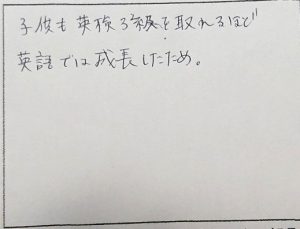 子供も英検3級を取れるほど
英語では成長したため。